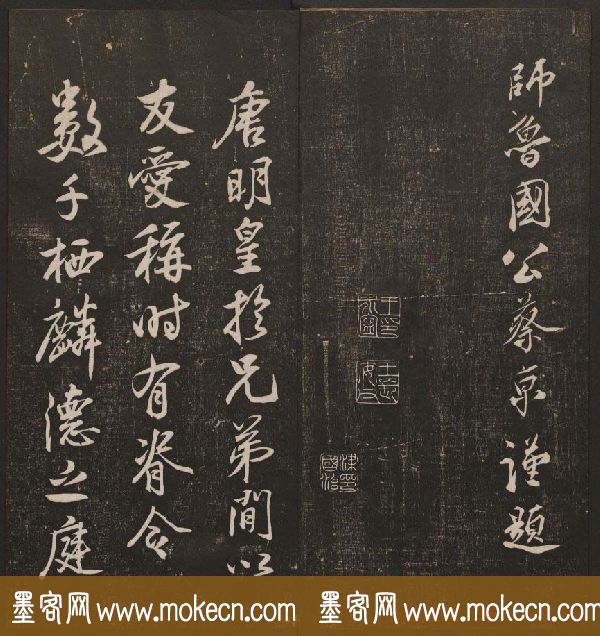 師魯國公蔡京謹題
唐明皇於兄弟間以
友愛稱时有脊令
數千栖麟德之庭
墨客网 www.mokecn.com 墨客网 www.mokecn.com